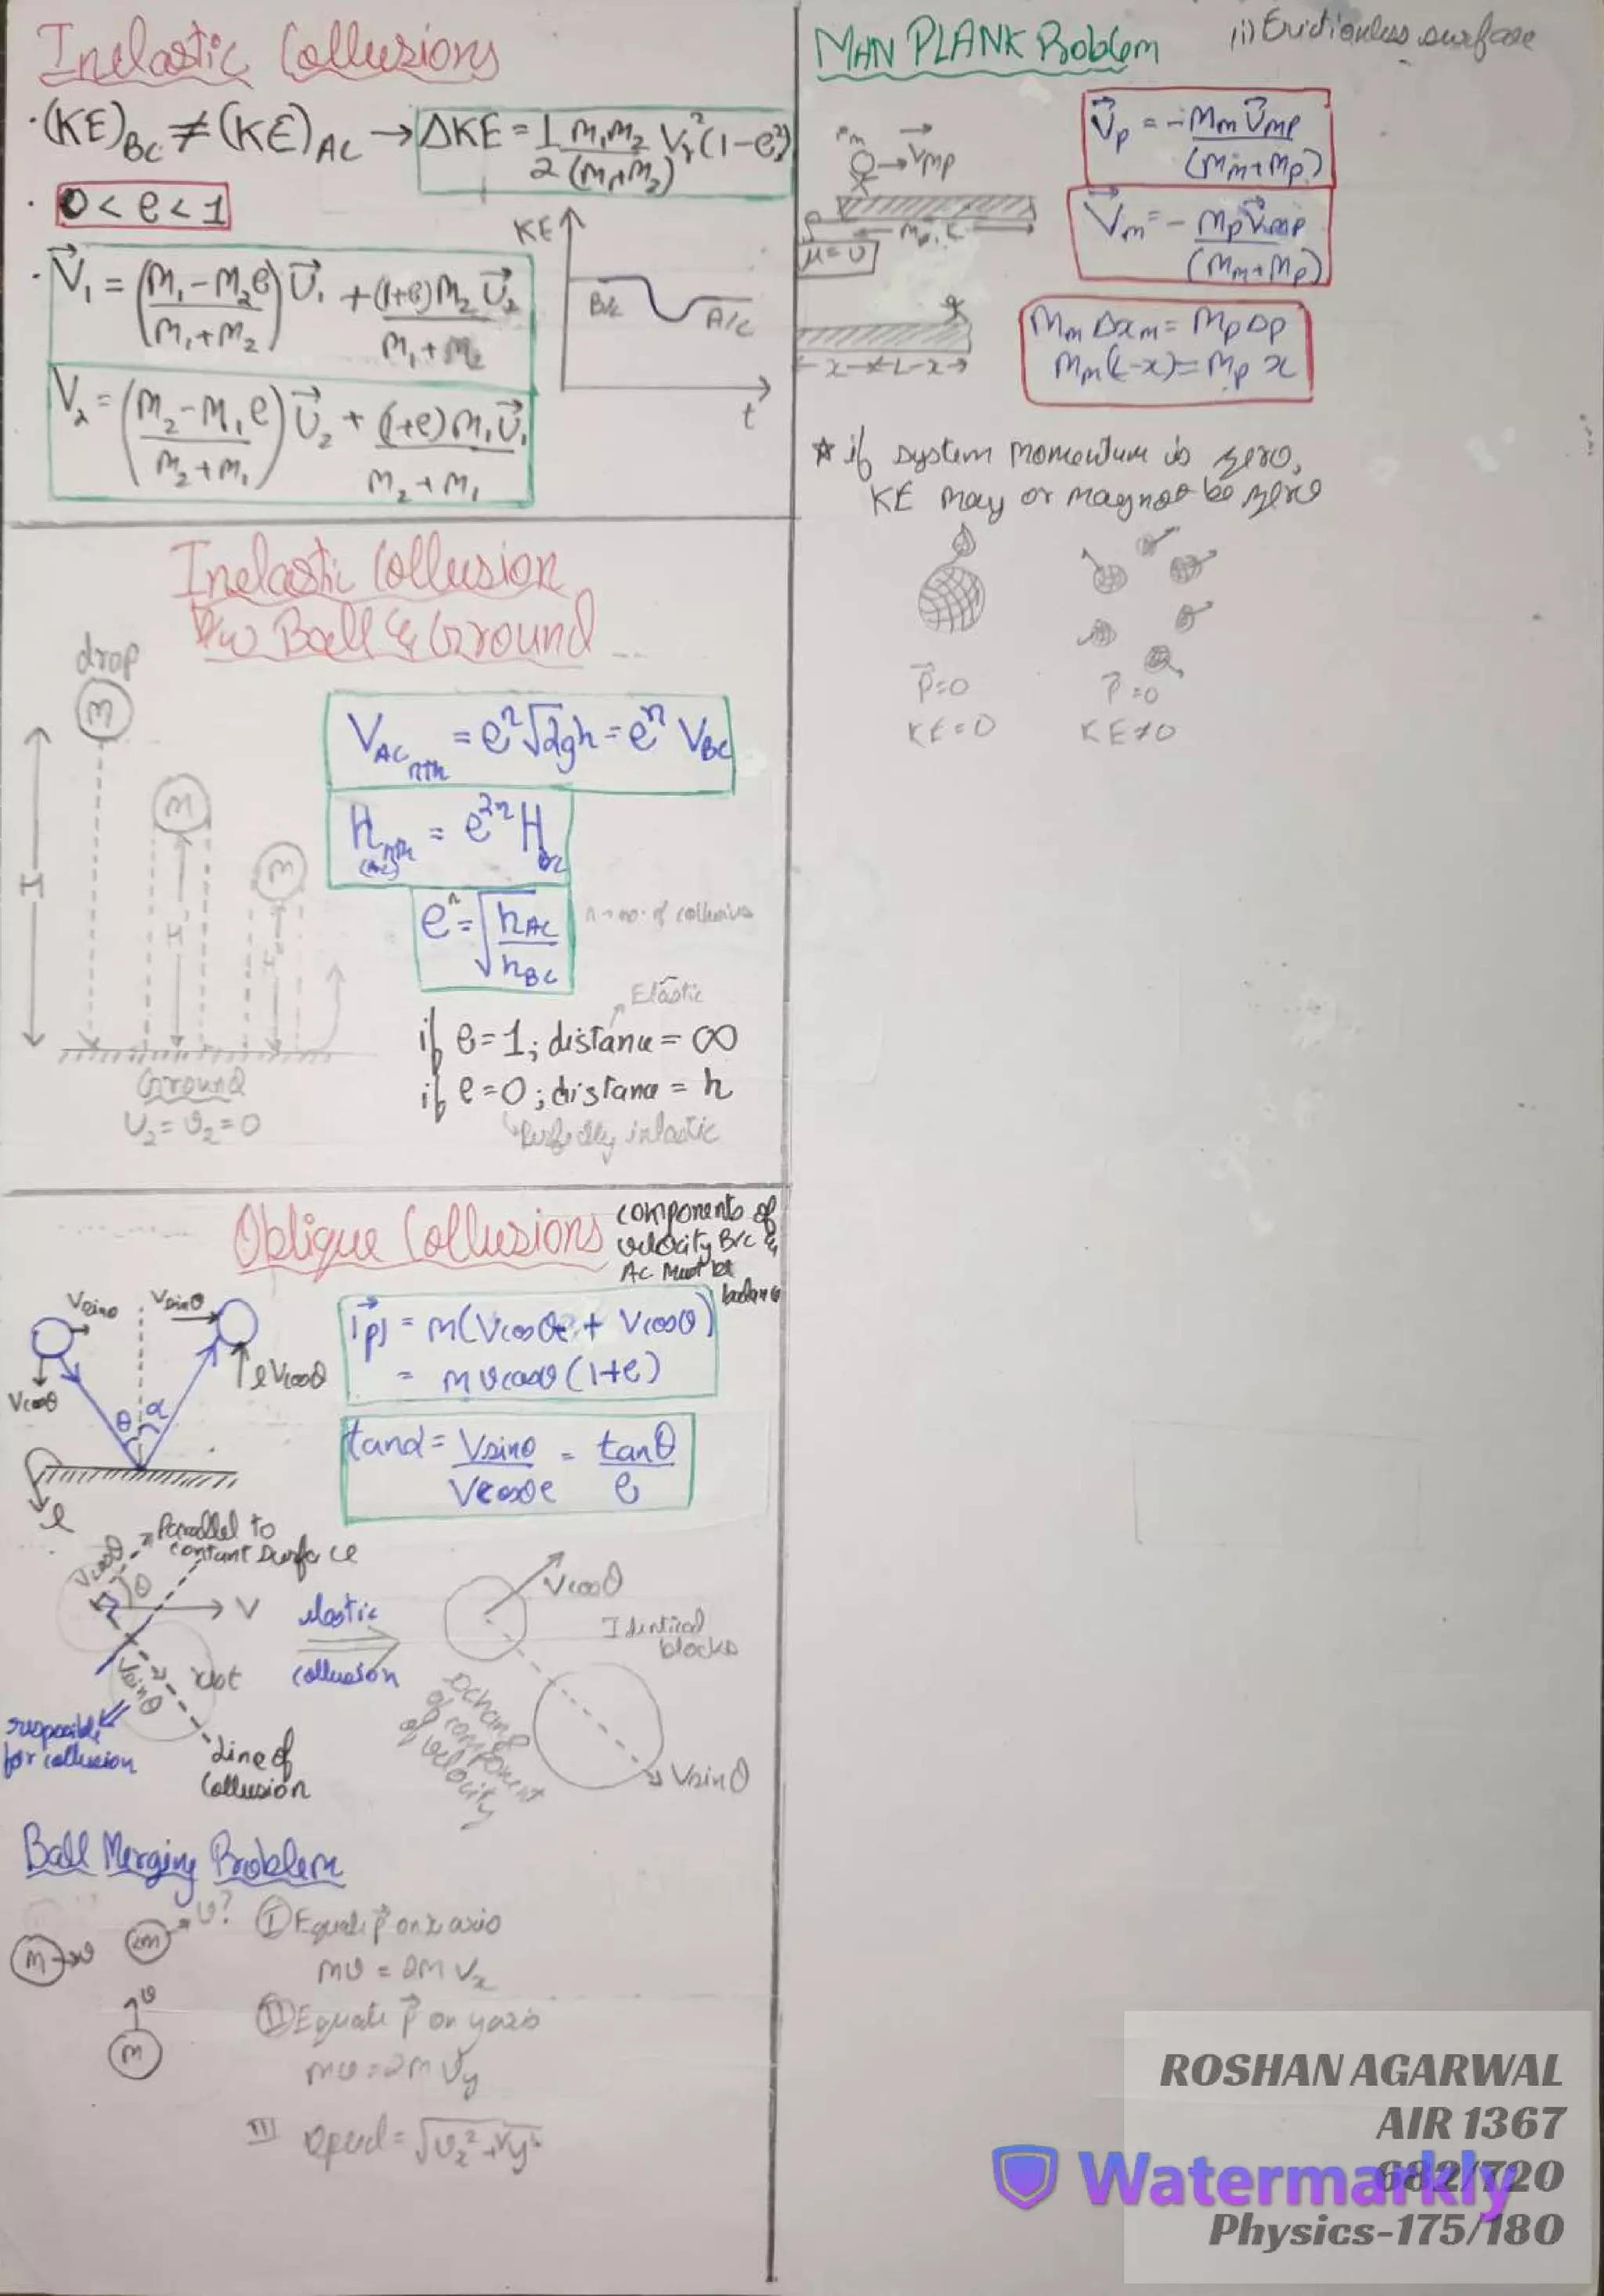 Inelastic Collusions
· (KE)BC ≠ (KE)AC → ΔKE = 1/2 m₁m₂/(m₁+m₂) Vr²(1-e²)
· 0 < e < 1
· V⃗₁ = (m₁-m₂e / m₁+m₂) U⃗₁ + (1+e)m₂U⃗₂ / m₁+m₂
V₂ = (m₂-m₁e / m₂+m₁) U⃗₂ + (1+e)m₁U⃗₁ / m₂+m₁
KE
B/c
A/c
t
Inelastic Collusion
b/w Ball & Ground
drop
m
m
m
H
Ground
U₂ = v₂ = 0
VAC nth = eⁿ√2gh = eⁿ VBC
Hnth (AC) = e²ⁿ HBC
eⁿ = √(hAC / hBC)
n → no. of collusions
Elastic
if e = 1; distance = ∞
if e = 0; distance = h
Perfectly inlastic
Oblique Collusions
components of
velocity B/c &
AC Must be
balance
Vsinθ
Vsinθ
Vcosθ
eVcosθ
θ
α
e
|p⃗| = m(Vcosθe + Vcosθ)
= mvcosθ(1+e)
tanα = Vsinθ / Vcosθe = tanθ / e
Parallel to
contant surface
Vcosθ
θ
V
Vsinθ
rest
responsible
for collusion
Line of
Collusion
elastic
collusion
Vcosθ
Identical
blocks
Vsinθ
of component
of velocity
Ball Merging Problem
m → v
2m
v?
v
m
I Equate p⃗ on x axis
mv = 2m Vx
II Equate p⃗ on y axis
mv = 2m Vy
III Speed = √vx² + Vy²
MAN PLANK Problem
i) Frictionless surface
Mm
V⃗mp
Mp, L
μ = 0
x
L - x
V⃗p = -Mm V⃗mp / (Mm + Mp)
V⃗m = - Mp V⃗mp / (Mm + Mp)
Mm Δxm = Mp Δp
Mm(L-x) = Mp x
☆ if system momentum is zero,
KE may or may not be zero
P⃗ = 0
KE = 0
P⃗ = 0
KE ≠ 0
ROSHAN AGARWAL
AIR 1367
682/720
Watermarkly
Physics-175/180